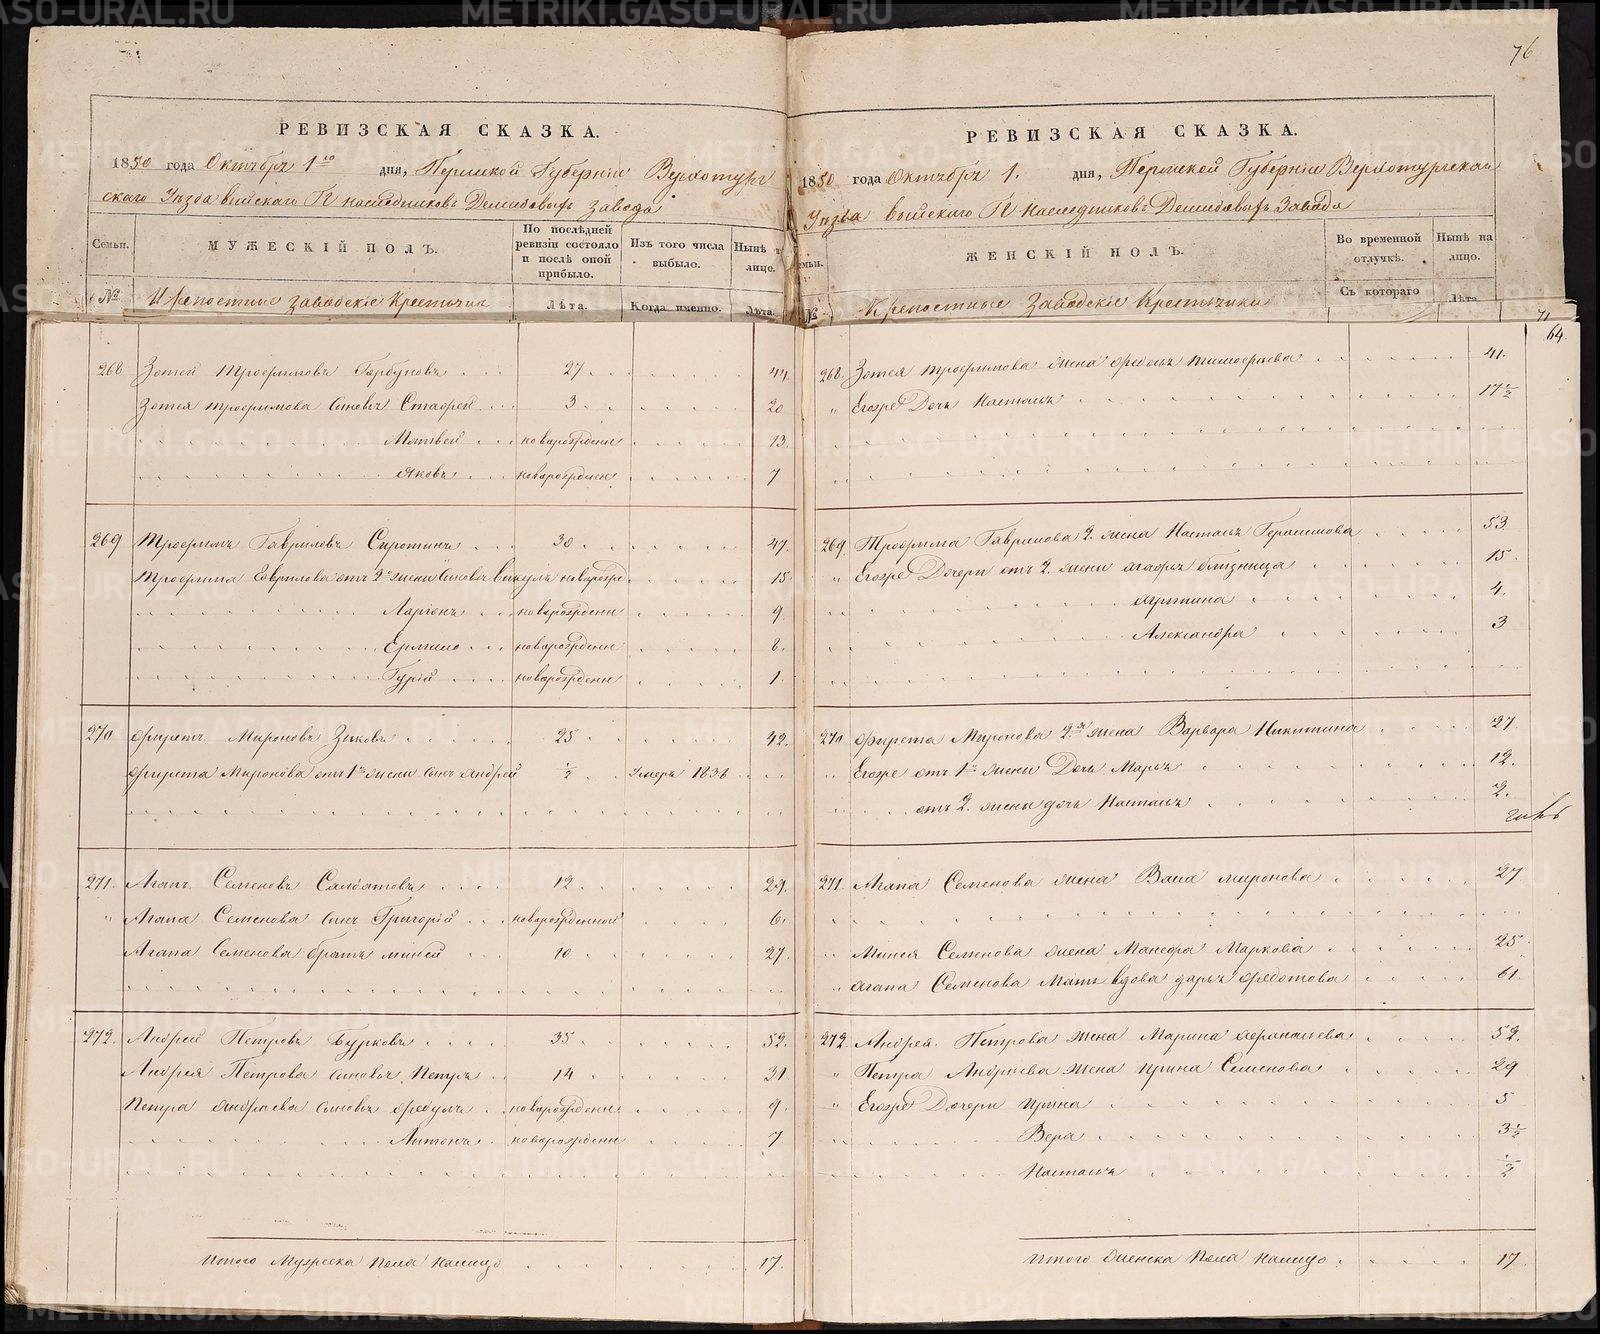 76
РЕВИЗСКАЯ СКАЗКА.
1850 года Октября 1го дня, Пермской Губерніи Верхотур
скаго Уѣзда Выйскаго Гг наследниковъ Демидовыхъ завода
Семьи.
МУЖЕСКІЙ ПОЛЪ.
По послѣдней ревизіи состояло и послѣ оной прибыло.
Изъ того числа выбыло.
Нынѣ на лицо.
№
Крепостные заводскіе Крестьяна
Лѣта.
Когда именно.
Лѣта.
268 Зотей Трофимовъ Горбуновъ 27 44
Зотея Трофимова Сыновья Стафей 3 20
Матвей новарожденн 13.
Яковъ новарожденн 7
269 Трофимъ Гавриловъ Сиротинъ 30 47.
Трофима Гаврилова отъ 2й жены Сыновья Викулъ новарожде 15
Ларіонъ новарожденн 9
Ермило новарожденн 8
Гурій новарожденн 1
270 Фирстъ Мироновъ Зыковъ 25 42.
Фирста Миронова отъ 1й жены Сынъ Андрей ½ Умеръ 1836
271. Агапъ Семеновъ Салдатовъ 12 29.
" Агапа Семенова Сынъ Григорій новарожденной 6
Агапа Семенова братъ Миней 10 27
272. Андрей Петровъ Бурковъ 35 52.
Андрея Петрова Сыновья Петръ 14 31
Петра Андреева Сыновья Федулъ новарожденн 9
Антонъ новарожденн 7
Итого Мужеска Пола Налицо 17.
РЕВИЗСКАЯ СКАЗКА.
1850 года Октября 1. дня, Пермской Губерніи Верхотурскаго
Уѣзда Выйскаго Гг Наследниковъ Демидовыхъ Завода
Семьи.
ЖЕНСКІЙ ПОЛЪ.
Во временной отлучкѣ.
Нынѣ на лицо.
№
Крепостные Заводскіе Крестьянки
Съ котораго
Лѣта.
71
64.
268. Зотея Трофимова жена Федосья Тимофеева 41.
" Егоже Дочь Настасья 17½
269. Трофима Гаврилова 2. жена Настасья Герасимова 53.
" Егоже Дочери отъ 2. жены Агафья близница 15
Агрипина 4.
Александра 3
270 Фирста Миронова 2я жена Варвара Никитина 27
" Егоже отъ 1й жены Дочь Марья 12.
отъ 2. жены дочь Настасья 2.
271. Агапа Семенова жена Васа Миронова 27
" Минея Семенова жена Манефа Маркова 25
" Агапа Семенова Мать вдова Дарья Федотова 61
272. Андрея Петрова жена Марина Афанасьева 52.
" Петра Андреева жена Ирина Семенова 29
" Егоже Дочери Ирина 5
Вера 3½
Настасья ½
Итого Женска Пола Налицо 17
METRIKI.GASO-URAL.RU